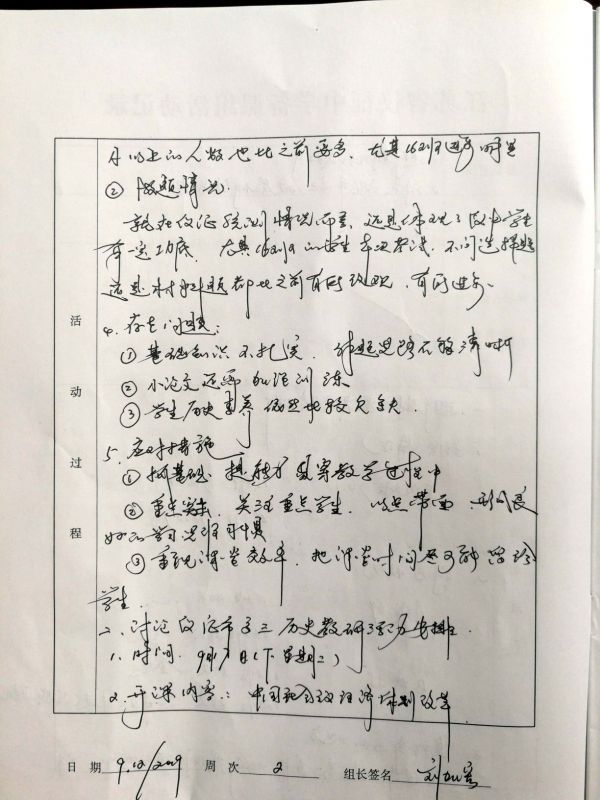 以上的人数也比之前要多，尤其16班进步明显
② 做题情况：
就在仪征统测情况而言，还是体现了学生
有一定功底，尤其16班的学生，不论选择题
还是材料题都比之前有所改观，有所进步。
4. 存在问题：
① 基础知识不扎实，做题思路不够清晰
② 小论文还要加强训练
③ 学生历史素养仍然比较欠缺．
5. 应对措施
① 抓基础，提能力贯穿教学过程中
② 重点突出，关注重点学生，以点带面，形成良
好的学习习惯
③ 重视课堂效率，把课堂时间尽可能留给
学生．
二、讨论仪征市高三历史教研活动安排：
1. 时间：9月17日（下星期二）
2. 开课内容：中国社会主义经济体制改革
活动过程
日 期 9.12/2019 周 次 2 组长签名